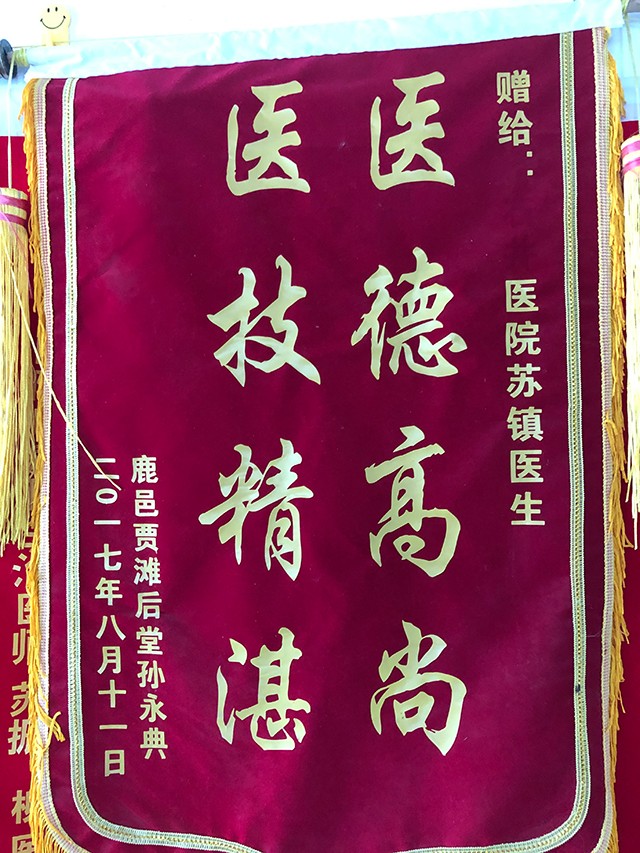 赠给：
医院苏镇医生
医德高尚
医技精湛
鹿邑贾滩后堂孙永典
二〇一七年八月十一日
医师苏振